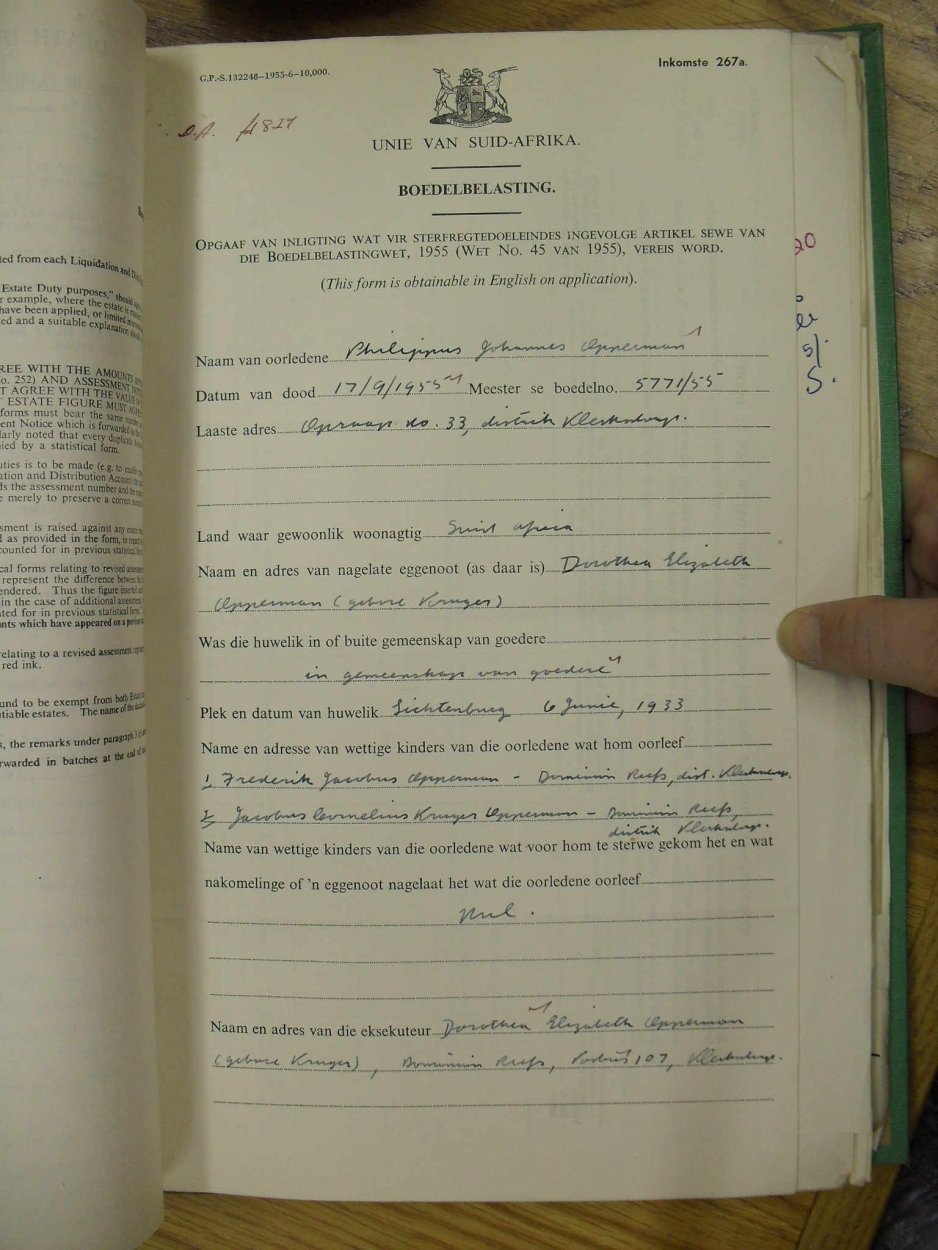 ted from each Liquidation and
Estate Duty purposes," should
r example, where the estate is
have been applied, or limited
ed and a suitable explanation
REE WITH THE AMOUNTS
o. 252) AND ASSESSMENT
T AGREE WITH THE VALUE OF
T ESTATE FIGURE MUST
forms must bear the same
ent Notice which is forwarded
larly noted that every duplicate
nied by a statistical form.
uties is to be made (e.g. to
ation and Distribution Account)
ds the assessment number and the
e merely to preserve a correct
sment is raised against any
d as provided in the form, in
counted for in previous statistical
cal forms relating to revised
represent the difference between
endered. Thus the figure
in the case of additional
ted for in previous statistical
nts which have appeared on a
relating to a revised assessment
red ink.
und to be exempt from both
tiable estates. The name of the
s, the remarks under paragraph
rwarded in batches at the end of
G.P.-S.132248-1955-6-10,000.
Inkomste 267a.
D.A. 4827
UNIE VAN SUID-AFRIKA.
BOEDELBELASTING.
OPGAAF VAN INLIGTING WAT VIR STERFREGTEDOELEINDES INGEVOLGE ARTIKEL SEWE VAN
DIE BOEDELBELASTINGWET, 1955 (WET NO. 45 VAN 1955), VEREIS WORD.
(This form is obtainable in English on application).
Naam van oorledene Philippus Johannes Opperman
Datum van dood 17/9/1955 Meester se boedelno. 5771/55
Laaste adres Opraap No. 33, distrik Klerksdorp.
Land waar gewoonlik woonagtig Suid Afrika
Naam en adres van nagelate eggenoot (as daar is) Dorothea Elizabeth
Opperman (gebore Kruger)
Was die huwelik in of buite gemeenskap van goedere
in gemeenskap van goedere
Plek en datum van huwelik Lichtenburg 6 Junie, 1933
Name en adresse van wettige kinders van die oorledene wat hom oorleef
1, Frederik Jacobus Opperman - Dominion Reefs, dist. Klerksdorp.
2, Jacobus Cornelius Kruger Opperman - Dominion Reefs,
distrik Klerksdorp.
Name van wettige kinders van die oorledene wat voor hom te sterwe gekom het en wat
nakomelinge of 'n eggenoot nagelaat het wat die oorledene oorleef
Nul.
Naam en adres van die eksekuteur Dorothea Elizabeth Opperman
(gebore Kruger), Dominion Reefs, Posbus 107, Klerksdorp.